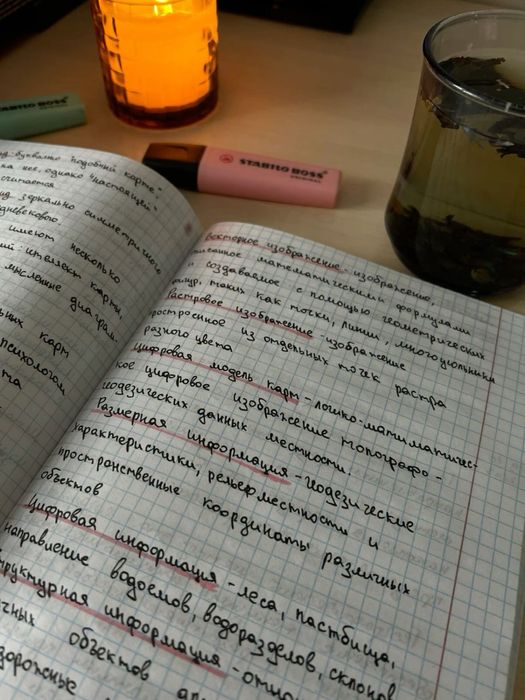 STABILO BOSS
STABILO BOSS
ORIGINAL
буквально "подобный карте"
на нее, однако "настоящей"
считается
зеркально симметричного
средневековою
имеют несколько
интеллект карты,
мысленные диаграм-
карт
психологом
Векторное изображение - изображение,
описанное математическими формулами
создаваемое с помощью геометрических
фигур, таких как точки, линии, многоугольники
Растровое изображение - изображение
построенное из отдельных точек растра
разного цвета
Цифровая модель карт - логико-матиматичес-
кое цифровое изображение топографо-
геодезических данных местности.
Размерная информация - геодезические
характеристики, рельеф местности и
пространственные координаты различных
объектов
Цифровая информация - леса, пастбища,
направление водоемов, водоразделов, склонов
структурная информация -
объектов
дорожные